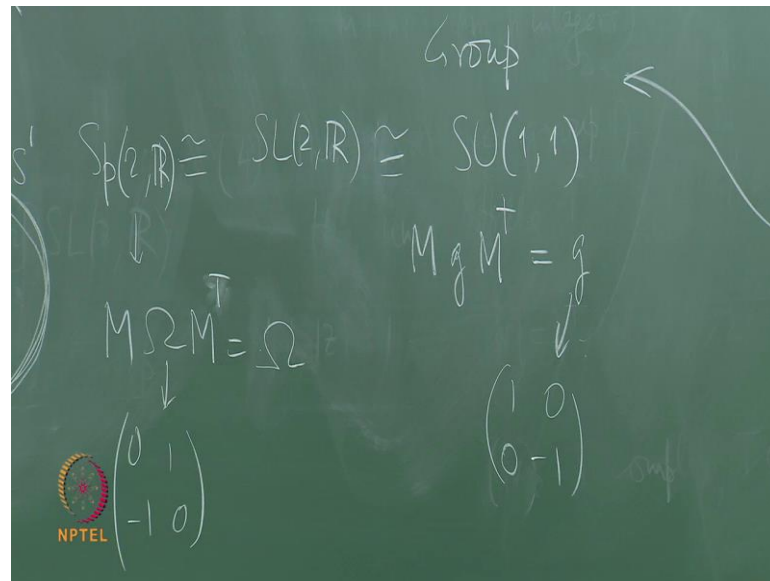 Group
S' Sp(2,ℝ) ≅ SL(2,ℝ) ≅ SU(1,1)
M Ω Mᵀ = Ω
M g M† = g
(0 1
-1 0)
(1 0
0 -1)
NPTEL